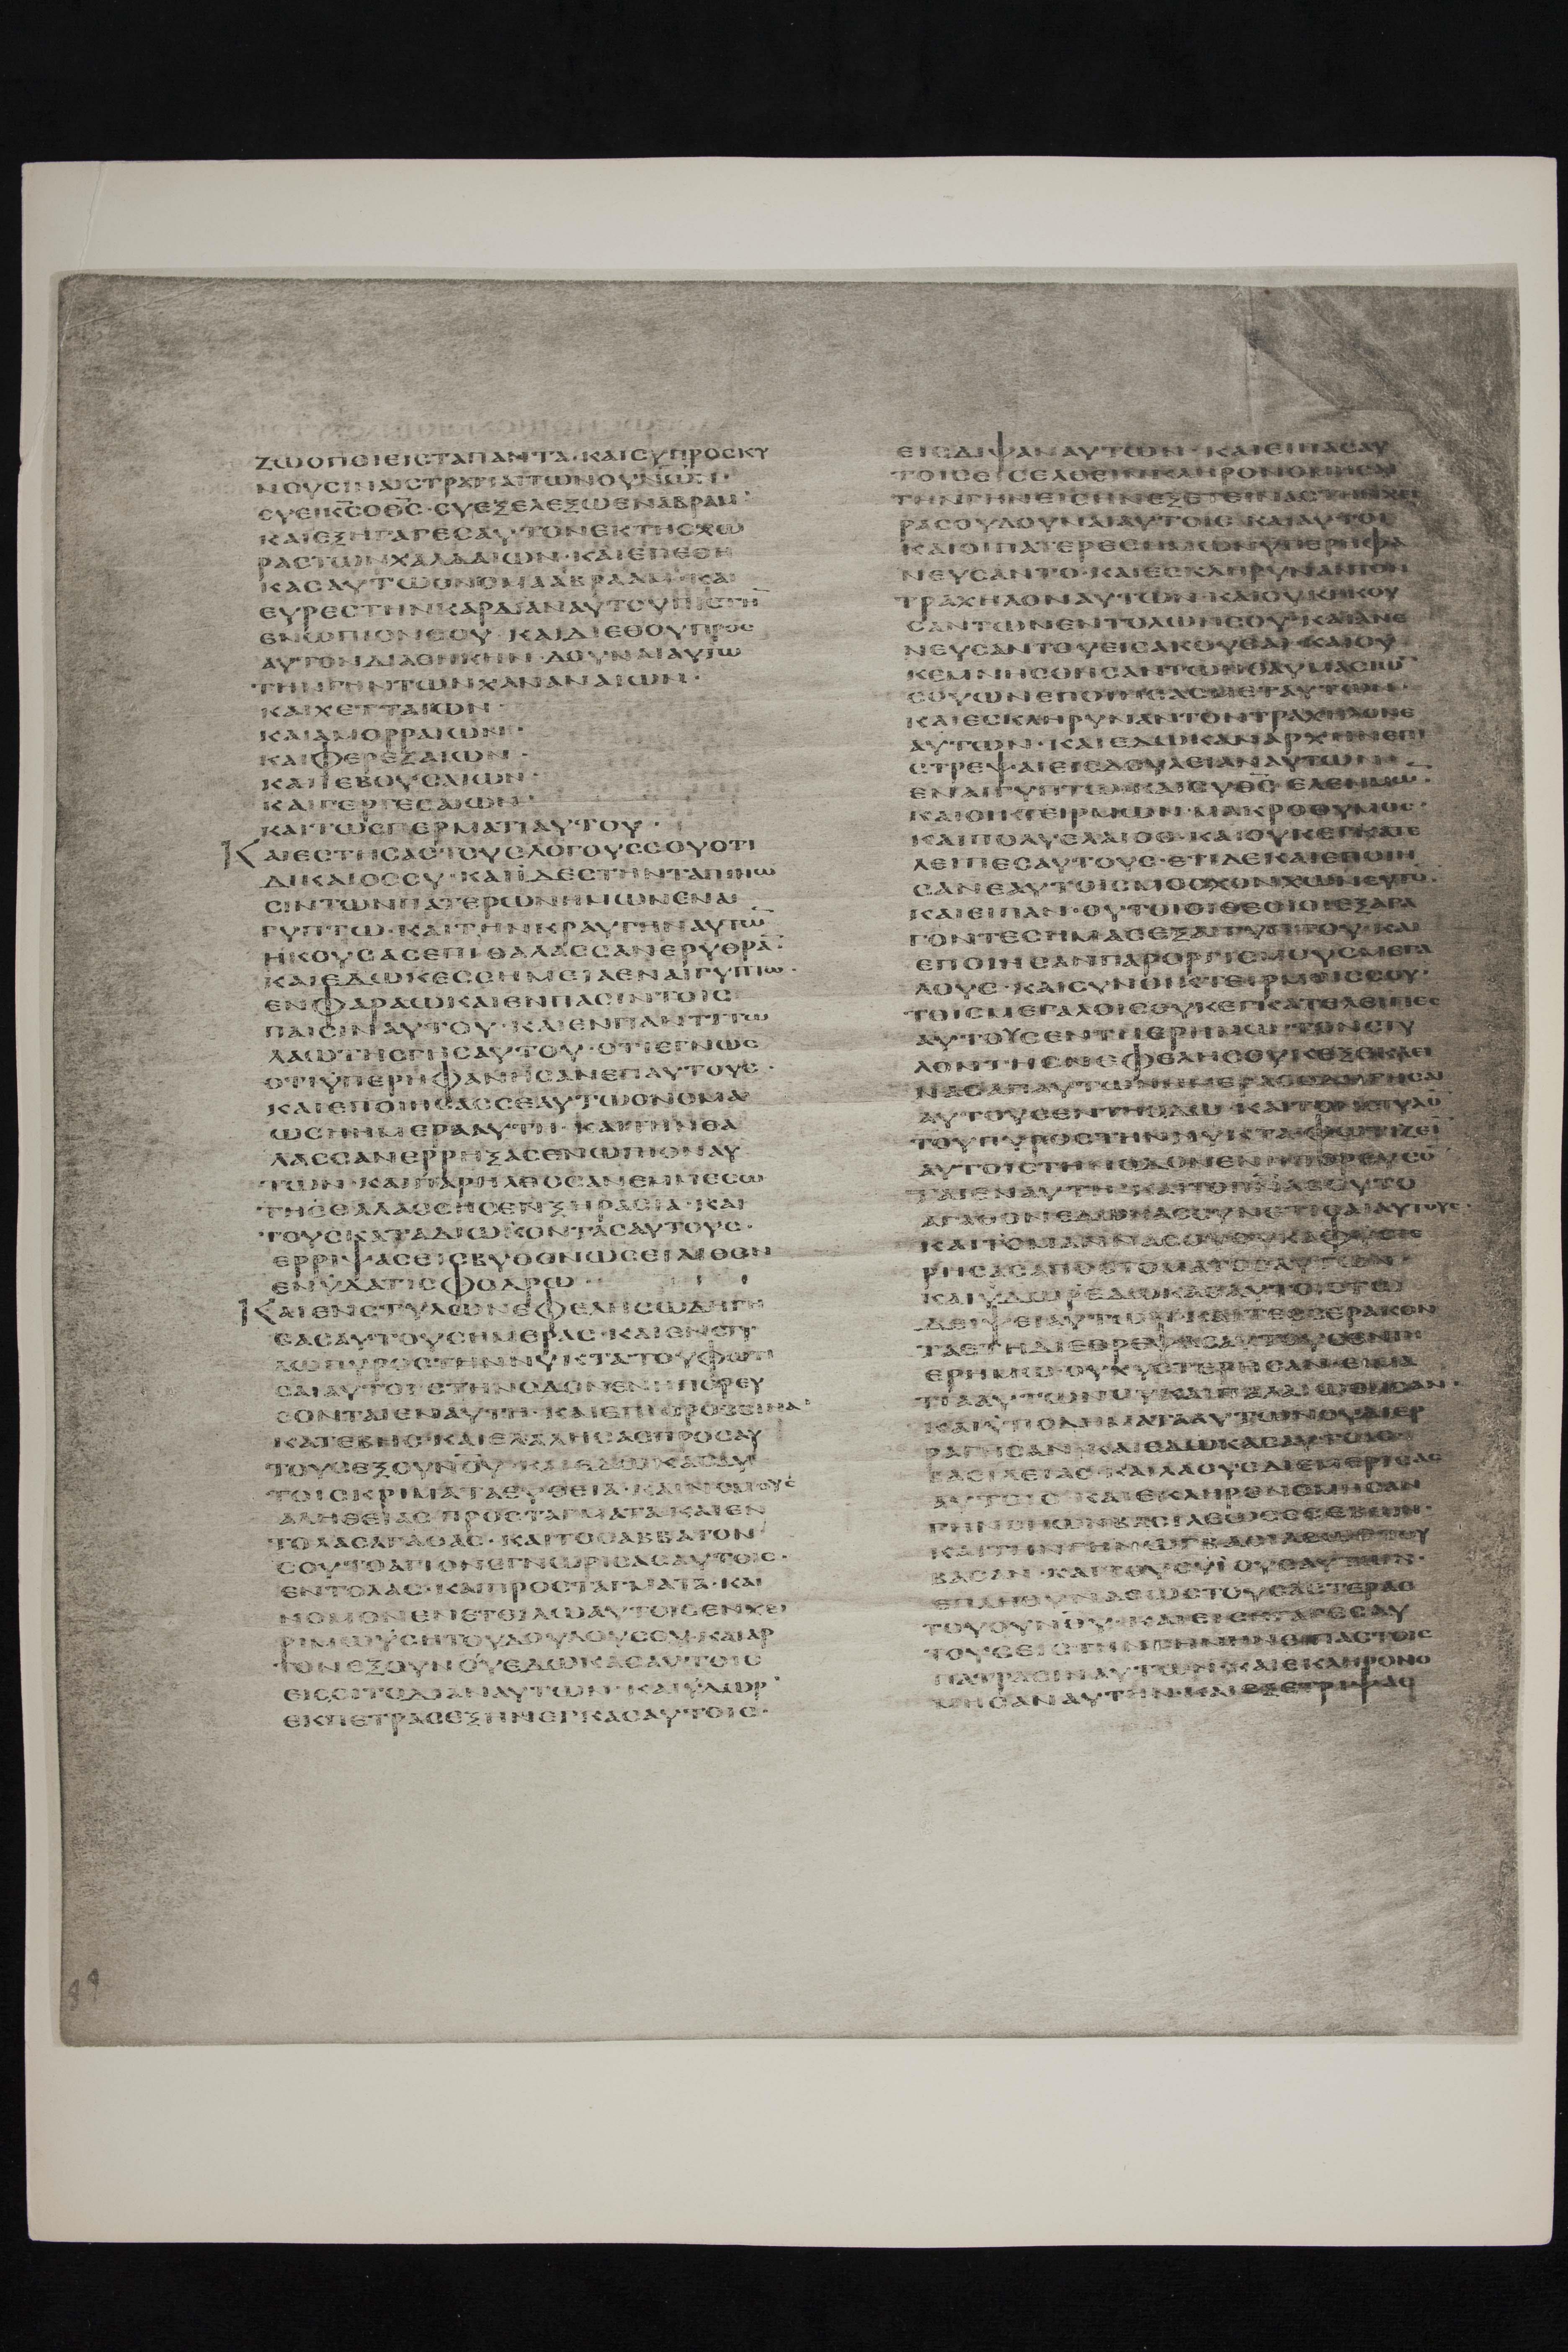 ΖΩΟΠΟΙΕΙCΤΑΠΑΝΤΑ·ΚΑΙCΥΠΡΟCΚΥ
ΝΟΥCΙΝΑΙCΤΡΑΤΙΑΙΤΩΝΟΥΝΩΝ·
CΥΕΙΚ̅C̅ΟΘ̅C̅·CΥΕΞΕΛΕΞΩΕΝΑΒΡΑΜ·
ΚΑΙΕΞΗΓΑΓΕCΑΥΤΟΝΕΚΤΗCΧΩ
ΡΑCΤΩΝΧΑΛΔΑΙΩΝ·ΚΑΙΕΠΕΘΗ
ΚΑCΑΥΤΩΟΝΟΜΑΑΒΡΑΑΜ·ΚΑΙ
ΕΥΡΕCΤΗΝΚΑΡΔΙΑΝΑΥΤΟΥΠΙCΤΗ̅
ΕΝΩΠΙΟΝCΟΥ·ΚΑΙΔΙΕΘΟΥΠΡΟC
ΑΥΤΟΝΔΙΑΘΗΚΗΝ·ΔΟΥΝΑΙΑΥΤΩ
ΤΗΝΓΗΝΤΩΝΧΑΝΑΝΑΙΩΝ·
ΚΑΙΧΕΤΤΑΙΩΝ·
ΚΑΙΑΜΟΡΡΑΙΩΝ·
ΚΑΙΦΕΡΕΖΑΙΩΝ·
ΚΑΙΙΕΒΟΥCΑΙΩΝ·
ΚΑΙΓΕΡΓΕCΑΙΩΝ·
ΚΑΙΤΩCΠΕΡΜΑΤΙΑΥΤΟΥ·
ΚΑΙΕCΤΗCΑCΤΟΥCΛΟΓΟΥCCΟΥΟΤΙ
ΔΙΚΑΙΟCCΥ·ΚΑΙΙΔΕCΤΗΝΤΑΠΙΝΩ
CΙΝΤΩΝΠΑΤΕΡΩΝΗΜΩΝΕΝΑΙ
ΓΥΠΤΩ·ΚΑΙΤΗΝΚΡΑΥΓΗΝΑΥΤΩ̅
ΗΚΟΥCΑCΕΠΙΘΑΛΑCCΑΝΕΡΥΘΡΑ̅·
ΚΑΙΕΔΩΚΕCCΗΜΕΙΑΕΝΑΙΓΥΠΤΩ·
ΕΝΦΑΡΑΩΚΑΙΕΝΠΑCΙΝΤΟΙC
ΠΑΙCΙΝΑΥΤΟΥ·ΚΑΙΕΝΠΑΝΤΙΤΩ
ΛΑΩΤΗCΓΗCΑΥΤΟΥ·ΟΤΙΕΓΝΩC
ΟΤΙΥΠΕΡΗΦΑΝΗCΑΝΕΠΑΥΤΟΥC·
ΚΑΙΕΠΟΙΗCΑCCΕΑΥΤΩΟΝΟΜΑ
ΩCΗΗΜΕΡΑΑΥΤΗ·ΚΑΙΤΗΝΘΑ
ΛΑCCΑΝΕΡΡΗΞΑCΕΝΩΠΙΟΝΑΥ
ΤΩΝ·ΚΑΙΠΑΡΗΛΘΟCΑΝΕΜΜΕCΩ
ΤΗCΘΑΛΑCCΗCΕΝΞΗΡΑCΙΑ·ΚΑΙ
ΤΟΥCΚΑΤΑΔΙΩΚΟΝΤΑCΑΥΤΟΥC·
ΕΡΡΙΨΑCΕΙCΒΥΘΟΝΩCΕΙΛΙΘΟΝ
ΕΝΥΔΑΤΙCΦΟΔΡΩ·
ΚΑΙΕΝCΤΥΛΩΝΕΦΕΛΗCΩΔΗΓΗ
CΑCΑΥΤΟΥCΗΜΕΡΑC·ΚΑΙΕΝCΤΥ
ΛΩΠΥΡΟCΤΗΝΝΥΚΤΑΤΟΥΦΩΤΙ
CΑΙΑΥΤΟΙCΤΗΝΟΔΟΝΕΝΗΠΟΡΕΥ
CΟΝΤΑΙΕΝΑΥΤΗ·ΚΑΙΕΠΙΟΡΟCCΙΝΑ·
ΚΑΤΕΒΗC·ΚΑΙΕΛΑΛΗCΑCΠΡΟCΑΥ
ΤΟΥCΕΞΟΥΝΟΥ·ΚΑΙΕΔΩΚΑCΑΥ
ΤΟΙCΚΡΙΜΑΤΑΕΥΘΕΙΑ·ΚΑΙΝΟΜΟΥC
ΑΛΗΘΕΙΑC·ΠΡΟCΤΑΓΜΑΤΑΚΑΙΕΝ
ΤΟΛΑCΑΓΑΘΑC·ΚΑΙΤΟCΑΒΒΑΤΟΝ
CΟΥΤΟΑΓΙΟΝΕΓΝΩΡΙCΑCΑΥΤΟΙC·
ΕΝΤΟΛΑC·ΚΑΙΠΡΟCΤΑΓΜΑΤΑ·ΚΑΙ
ΝΟΜΟΝΕΝΕΤΕΙΛΩΑΥΤΟΙCΕΝΧΕΙ
ΡΙΜΩΥCΗΤΟΥΔΟΥΛΟΥCΟΥ·ΚΑΙΑΡ
ΤΟΝΕΞΟΥΝΟΥΕΔΩΚΑCΑΥΤΟΙC
ΕΙCCΙΤΟΔΙΑΝΑΥΤΩΝ·ΚΑΙΥΔΩΡ·
ΕΚΠΕΤΡΑCΕΞΗΝΕΓΚΑCΑΥΤΟΙC·
ΕΙCΔΙΨΑΝΑΥΤΩΝ·ΚΑΙΕΙΠΑCΑΥ
ΤΟΙCΕΙCΕΛΘΕΙΝΚΛΗΡΟΝΟΜΗCΑΙ
ΤΗΝΓΗΝΕΙCΗΝΕΞΕΤΕΙΝΑCΤΗΝΧΕΙ
ΡΑCΟΥΔΟΥΝΑΙΑΥΤΟΙC·ΚΑΙΑΥΤΟΙ
ΚΑΙΟΙΠΑΤΕΡΕCΗΜΩΝΥΠΕΡΗΦΑ
ΝΕΥCΑΝΤΟ·ΚΑΙΕCΚΛΗΡΥΝΑΝΤΟΝ
ΤΡΑΧΗΛΟΝΑΥΤΩΝ·ΚΑΙΟΥΚΗΚΟΥ
CΑΝΤΩΝΕΝΤΟΛΩΝCΟΥ·ΚΑΙΑΝΕ
ΝΕΥCΑΝΤΟΥΕΙCΑΚΟΥCΑΙ·ΚΑΙΟΥ
ΚΕΜΝΗCΘΗCΑΝΤΩΝΘΑΥΜΑCΙΩ̅
CΟΥΩΝΕΠΟΙΗCΑCΜΕΤΑΥΤΩΝ·
ΚΑΙΕCΚΛΗΡΥΝΑΝΤΟΝΤΡΑΧΗΛΟΝΕ
ΑΥΤΩΝ·ΚΑΙΕΔΩΚΑΝΑΡΧΗΝΕΠΙ
CΤΡΕΨΑΙΕΙCΔΟΥΛΕΙΑΝΑΥΤΩΝ
ΕΝΑΙΓΥΠΤΩ·ΚΑΙCΥΘ̅C̅ΕΛΕΗΜΩ̅·
ΚΑΙΟΙΚΤΕΙΡΜΩΝ·ΜΑΚΡΟΘΥΜΟC·
ΚΑΙΠΟΛΥΕΛΑΙΟC·ΚΑΙΟΥΚΕΓΚΑΤΕ
ΛΕΙΠΕCΑΥΤΟΥC·ΕΤΙΔΕΚΑΙΕΠΟΙΗ
CΑΝΕΑΥΤΟΙCΜΟCΧΟΝΧΩΝΕΥΤΟ̅·
ΚΑΙΕΙΠΑΝ·ΟΥΤΟΙΟΙΘΕΟΙΟΙΕΞΑΓΑ
ΓΟΝΤΕCΗΜΑCΕΞΑΙΓΥΠΤΟΥ·ΚΑΙ
ΕΠΟΙΗCΑΝΠΑΡΟΡΓΙCΜΟΥCΜΕΓΑ
ΛΟΥC·ΚΑΙCΥΝΟΙΚΤΕΙΡΜΟΙCCΟΥ·
ΤΟΙCΜΕΓΑΛΟΙCΟΥΚΕΓΚΑΤΕΛΕΙΠΕC
ΑΥΤΟΥCΕΝΤΗΕΡΗΜΩ·ΤΟΝCΤΥ
ΛΟΝΤΗCΝΕΦΕΛΗCΟΥΚΕΞΕΚΛΕΙ
ΝΑCΑΠΑΥΤΩΝΗΜΕΡΑCΟΔΗΓΗCΑΙ
ΑΥΤΟΥCΕΝΤΗΟΔΩ·ΚΑΙΤΟΝCΤΥΛΟ̅
ΤΟΥΠΥΡΟCΤΗΝΝΥΚΤΑ·ΦΩΤΙΖΕΙ̅
ΑΥΤΟΙCΤΗΝΟΔΟΝΕΝΗΠΟΡΕΥCΟ̅
ΤΑΙΕΝΑΥΤΗ·ΚΑΙΤΟΠ̅Ν̅ΑCΟΥΤΟ
ΑΓΑΘΟΝΕΔΩΚΑCCΥΝΕΤΙCΑΙΑΥΤΟΥC·
ΚΑΙΤΟΜΑΝΝΑCΟΥΟΥΚΑΦΥCΤΕ
ΡΗCΑCΑΠΟCΤΟΜΑΤΟCΑΥΤΩΝ·
ΚΑΙΥΔΩΡΕΔΩΚΑCΑΥΤΟΙCΤΩ
ΔΕΙΨΕΙΑΥΤΩΝ·ΚΑΙΤΕCCΕΡΑΚΟΝ
ΤΑΕΤΗΔΙΕΘΡΕΨΑCΑΥΤΟΥCΕΝΤΗ
ΕΡΗΜΩ·ΟΥΧΥCΤΕΡΗCΑΝ·ΕΙΜΑ
ΤΙΑΑΥΤΩΝΟΥΚΑΙΠΑΛΑΙΩΘΗCΑΝ·
ΚΑΙΥΠΟΔΗΜΑΤΑΑΥΤΩΝΟΥΔΙΕΡ
ΡΑΓΗCΑΝ·ΚΑΙΕΔΩΚΑCΑΥΤΟΙC
ΒΑCΙΛΕΙΑC·ΚΑΙΛΑΟΥCΔΙΕΜΕΡΙCΑC
ΑΥΤΟΙC·ΚΑΙΕΚΛΗΡΟΝΟΜΗCΑΝ
ΓΗΝCΗΩΝΒΑCΙΛΕΩCΕCΕΒΩΝ·
ΚΑΙΤΗΝΓΗΝΩΓΒΑCΙΛΕΩCΤΟΥ
ΒΑCΑΝ·ΚΑΙΤΟΥCΥΙΟΥCΑΥΤΩΝ·
ΕΠΛΗΘΥΝΑCΩCΤΟΥCΑCΤΕΡΑC
ΤΟΥΟΥΝΟΥ·ΚΑΙΕΙCΗΓΑΓΕCΑΥ
ΤΟΥCΕΙCΤΗΝΓΗΝΗΝΕΙΠΑCΤΟΙC
ΠΑΤΡΑCΙΝΑΥΤΩΝ·ΚΑΙΕΚΛΗΡΟΝΟ
ΜΗCΑΝΑΥΤΗΝ·ΚΑΙΕΞΕΤΡΙΨΑC
89